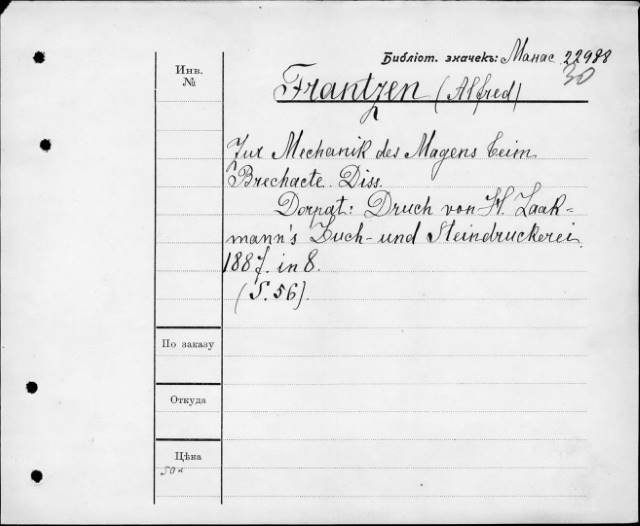 Библіот. значекъ: Манас. 22988
30
Инв.
№
Frantzen (Alfred)
Zur Mechanik des Magens beim
Brechacte. Diss.
Dorpat: Druch von H. Laak-
mann's Buch- und Steindruckerei.
1887. in 8.
(S. 56).
По заказу
Откуда
Цѣна
50к